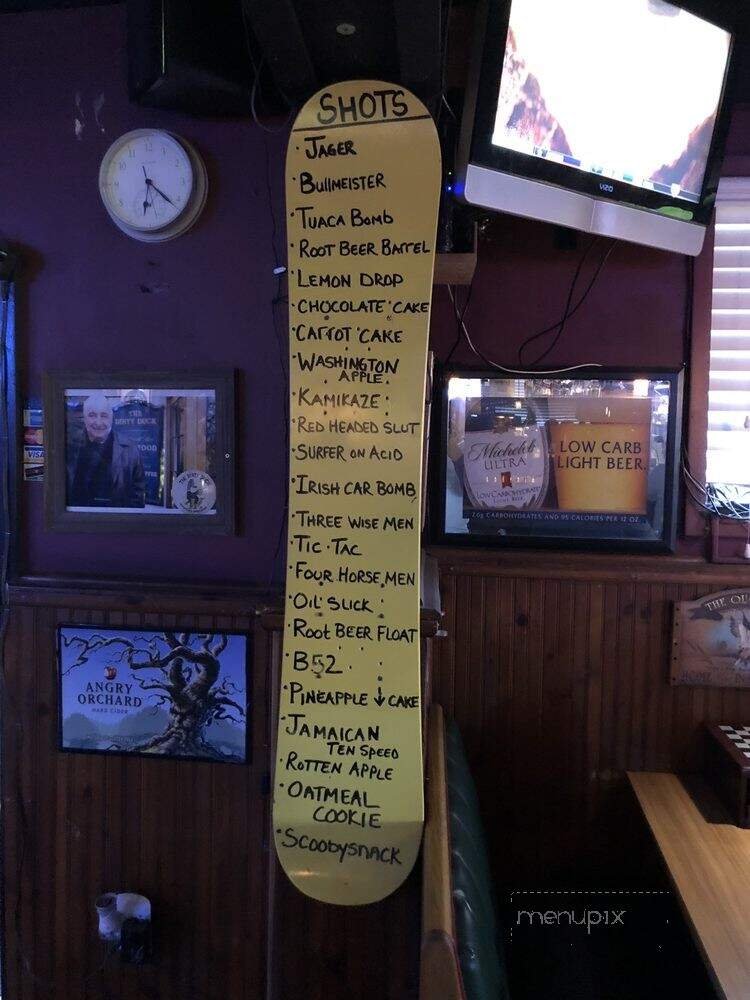 SHOTS
• JAGER
• BULLMEISTER
• TUACA BOMB
• ROOT BEER BARREL
• LEMON DROP
• CHOCOLATE CAKE
• CARROT CAKE
• WASHINGTON
APPLE
• KAMIKAZE
• RED HEADED SLUT
• SURFER ON ACID
• IRISH CAR BOMB
• THREE WISE MEN
• TIC TAC
• FOUR HORSE MEN
• OIL SLICK
• ROOT BEER FLOAT
• B52
• PINEAPPLE ↓ CAKE
• JAMAICAN
TEN SPEED
• ROTTEN APPLE
• OATMEAL
COOKIE
• SCOOBYSNACK
VIZIO
THE
DIRTY DUCK
VISA
Michelob
ULTRA
LOW CARBOHYDRATE
LIGHT BEER
LOW CARB
LIGHT BEER.
2.6g CARBOHYDRATES AND 95 CALORIES PER 12 OZ.
ANGRY
ORCHARD
HARD CIDER
THE
menupix